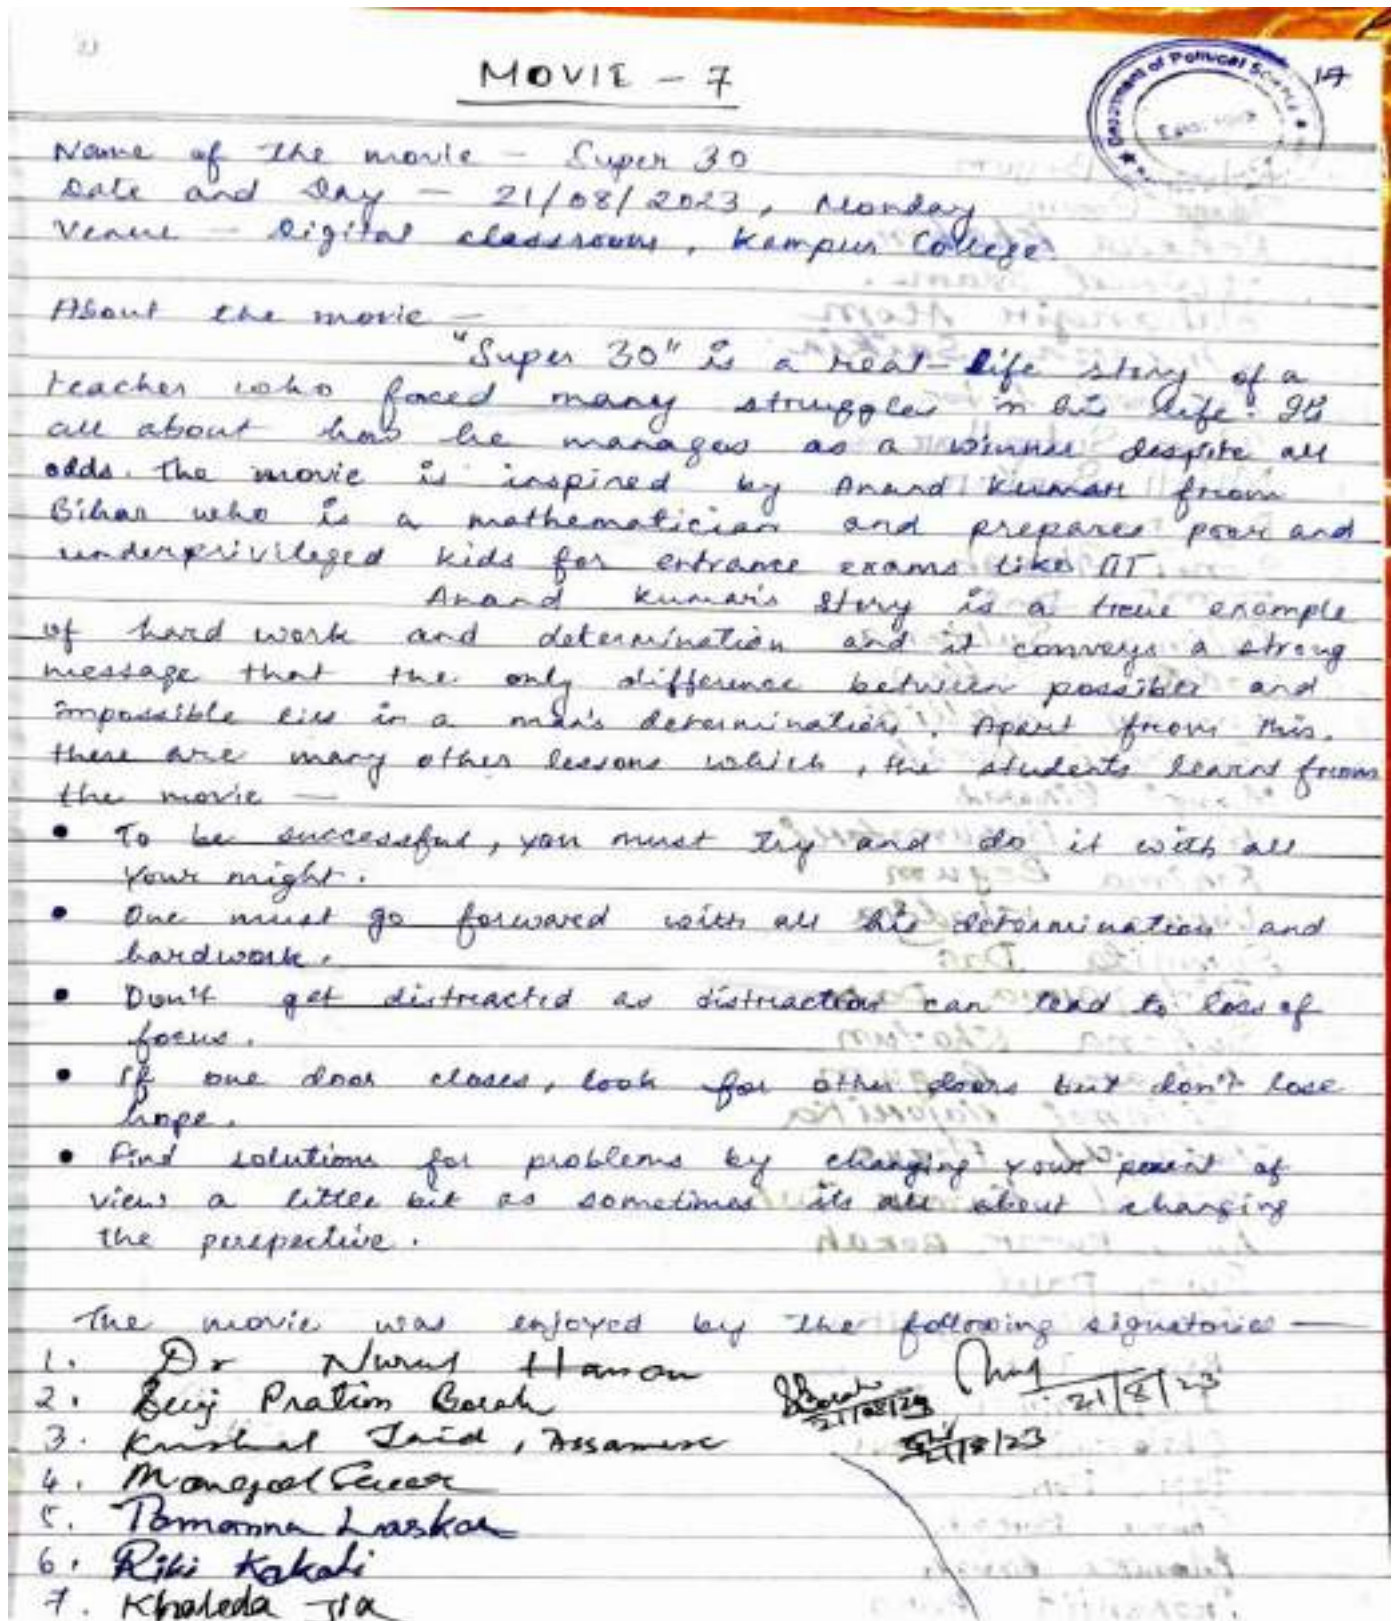 MOVIE - 7
17
Department of Political Science
Name of the movie - Super 30
Date and Day - 21/08/2023, Monday
Venue - Digital classroom, Kampur College.
About the movie -
"Super 30" is a real-life story of a
teacher who faced many struggles in his life. Its
all about how he manages as a winner despite all
odds. The movie is inspired by Anand Kumar from
Bihar who is a mathematician and prepares poor and
underprivileged kids for entrance exams like IIT.
Anand Kumar's story is a true example
of hard work and determination and it conveys a strong
message that the only difference between possible and
impossible lies in a man's determination. Apart from this,
there are many other lessons which, the students learnt from
the movie -
• To be successful, you must try and do it with all
your might.
• One must go forward with all his determination and
hardwork.
• Don't get distracted as distraction can lead to loss of
focus.
• If one door closes, look for other doors but don't lose
hope.
• Find solutions for problems by changing your point of
view a little bit as sometimes its all about changing
the perspective.
The movie was enjoyed by the following signatories -
1. Dr Nurul Hassan 21/8/23
2. Pration Borah SBorah 21/08/23
3. Kushal Said, Assamese 21/8/23
4.
5. Tamanna Laskar
6. Riki Kakati
7. Khaleda Zia